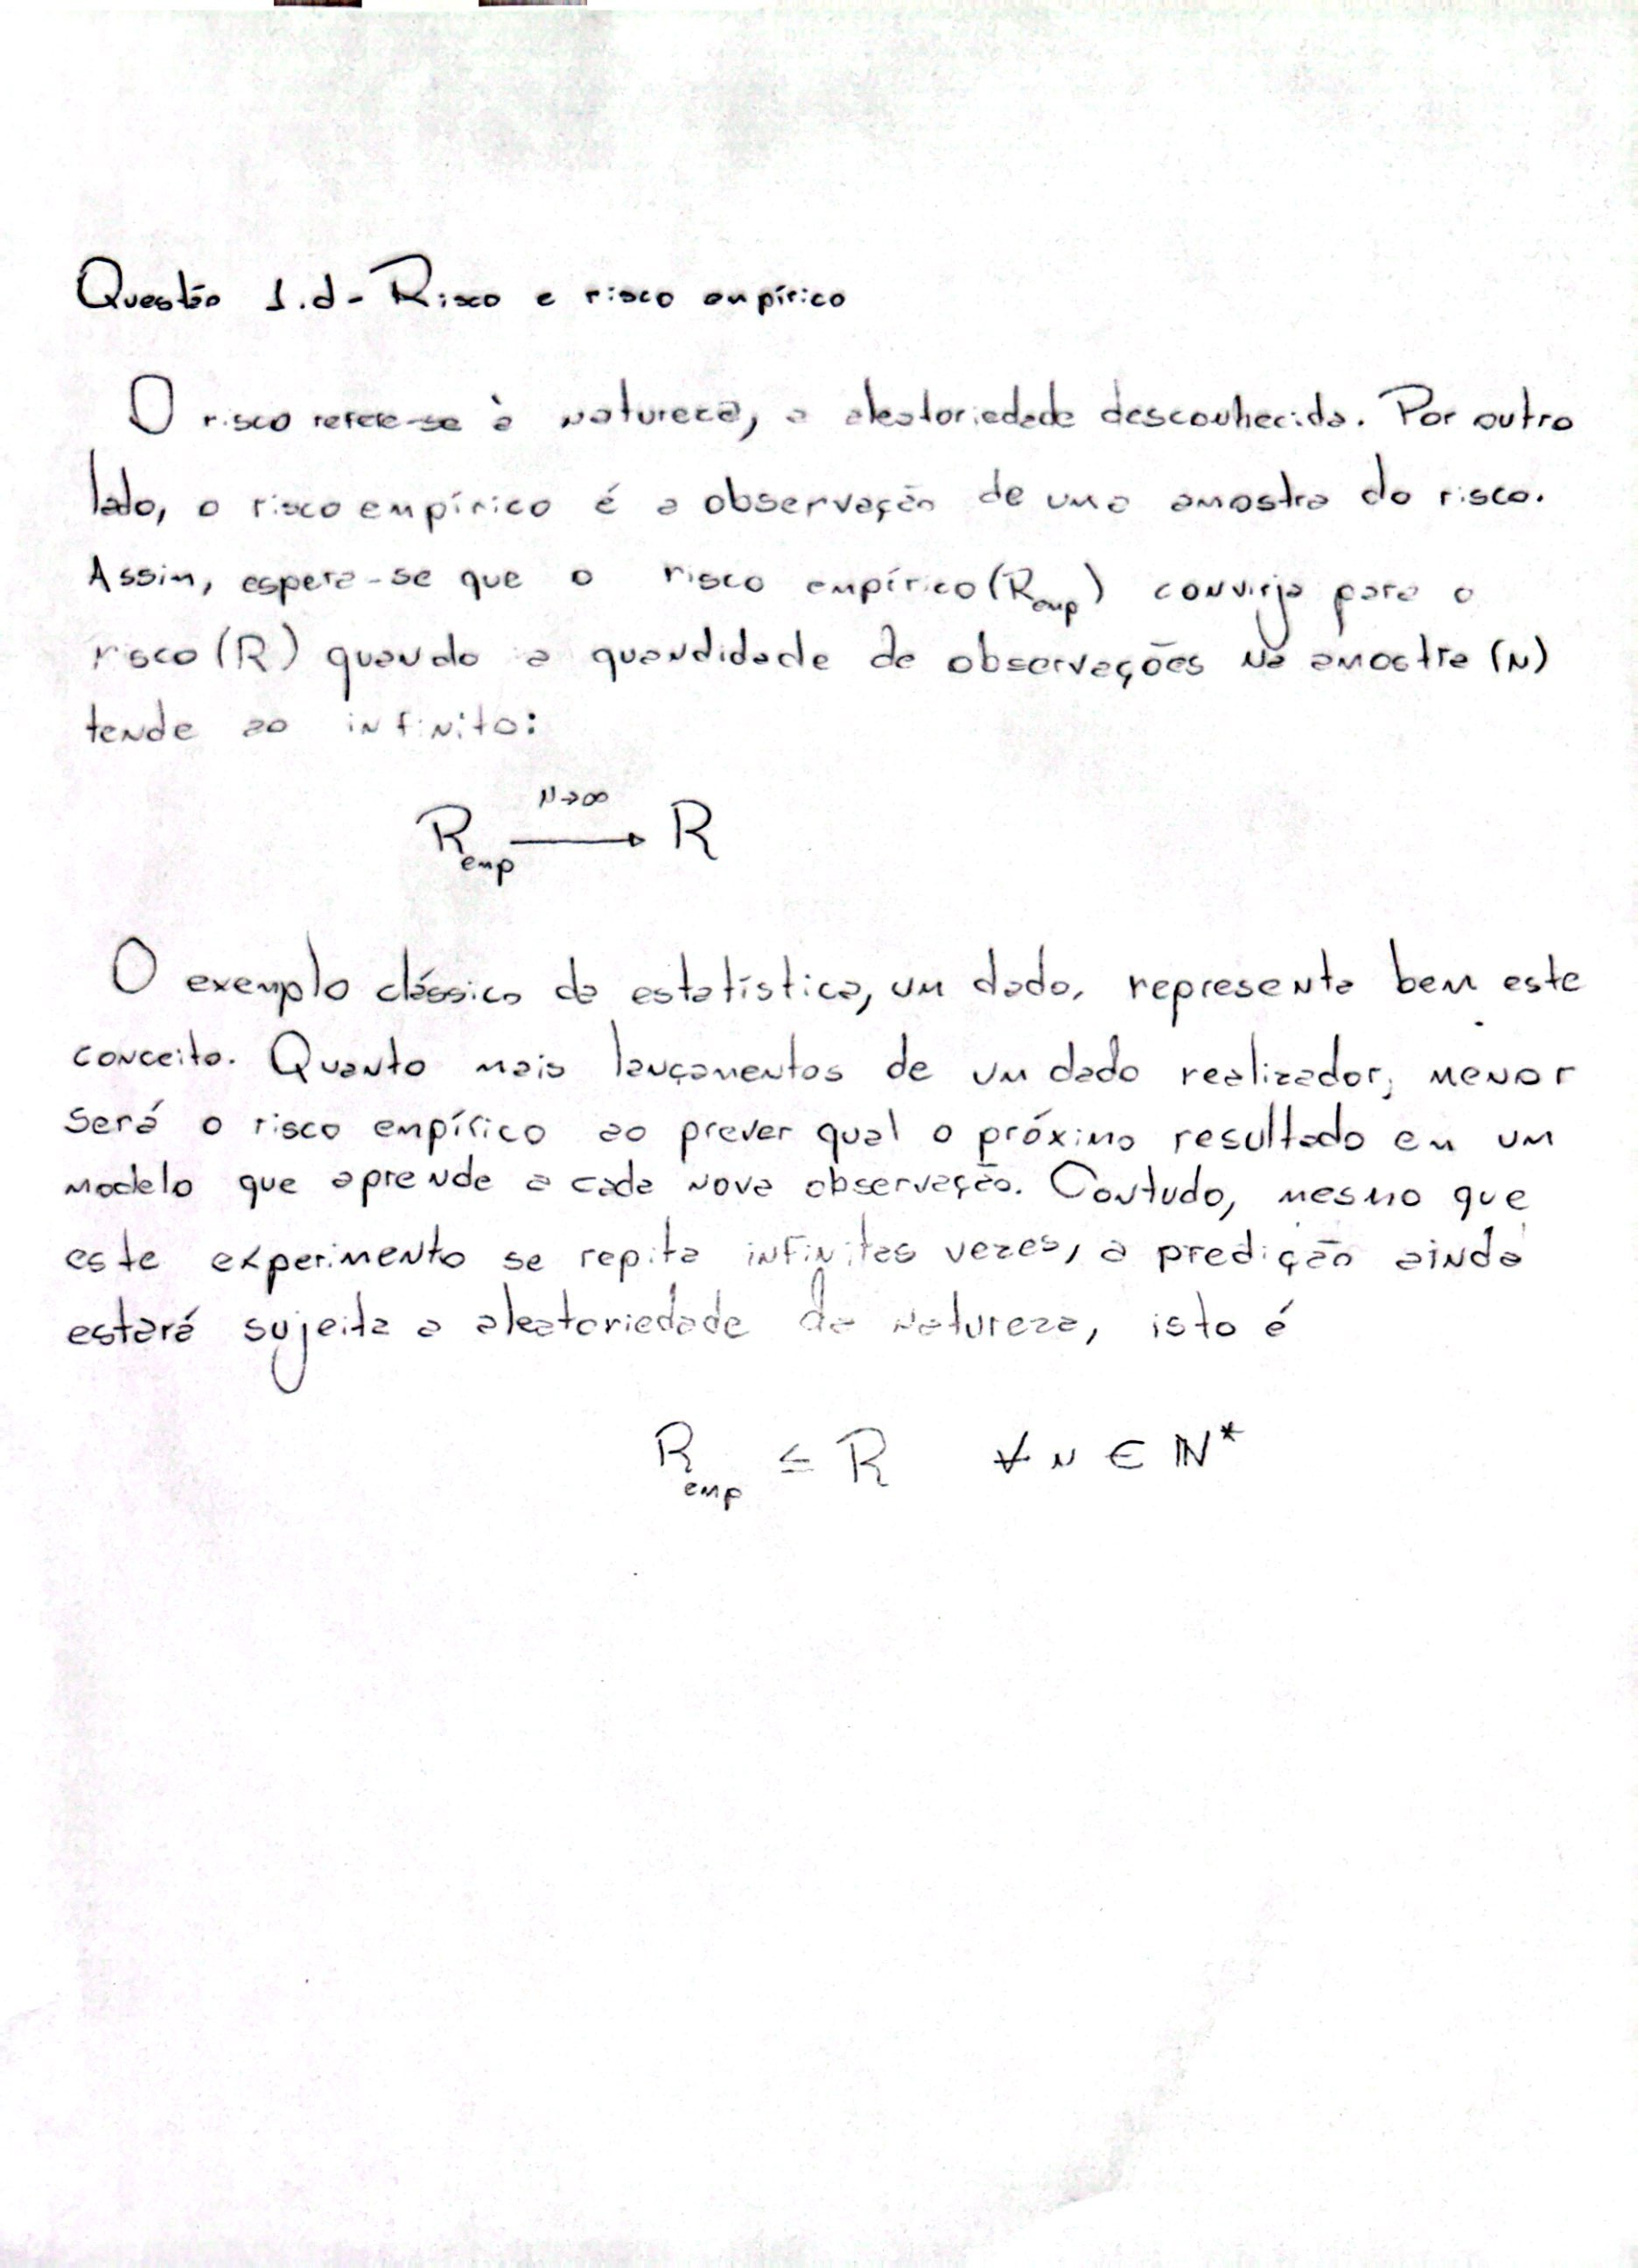 Questão 1.d - Risco e risco empírico
O risco refere-se à natureza, a aleatoriedade desconhecida. Por outro
lado, o risco empírico é a observação de uma amostra do risco.
Assim, espera-se que o risco empírico (R_emp) convirja para o
risco (R) quando a quandidade de observações na amostra (N)
tende ao infinito:
R_emp \xrightarrow{N→∞} R
O exemplo clássico da estatística, um dado, representa bem este
conceito. Quanto mais lançamentos de um dado realizador, menor
será o risco empírico ao prever qual o próximo resultado em um
modelo que aprende a cada nova observação. Contudo, mesmo que
este experimento se repita infinitas vezes, a predição ainda
estará sujeita a aleatoriedade da natureza, isto é
R_emp ≤ R ∀ N ∈ ℕ*